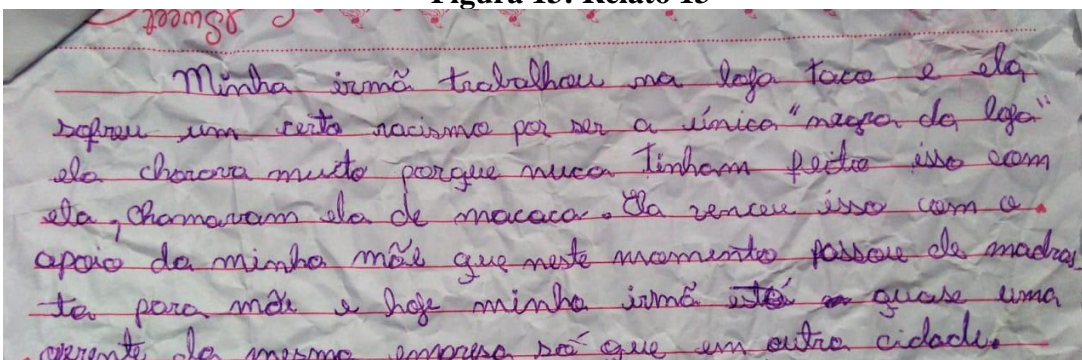 Figura 15: Relato 15
Sweet
Minha irmã trabalhou na loja taco e ela
sofreu um certo racismo por ser a única "negra da loja"
ela chorava muito porque nuca tinham feito isso com
ela, chamavam ela de macaca. Ela venceu isso com o
apoio da minha mãe que neste momento passou de madras
ta para mãe e hoje minha irmã está quase uma
gerente da mesma empresa só que em outra cidade.